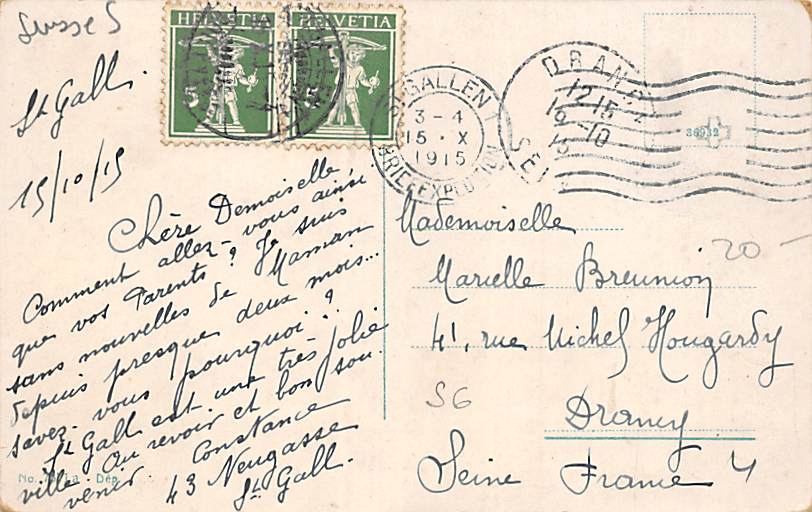 Suisse 5
HELVETIA HELVETIA
5 5
St Gall.
15/10/15
ST. GALLEN 1
3-4
15 · X
1915
BRIEFEXPEDITION
DRANCY
12 15
19-10
15
SEINE
36932
Chère Demoiselle,
Comment allez-vous ainsi
que vos Parents? Je suis
sans nouvelles de Maman
depuis presque deux mois...
savez-vous pourquoi??
St Gall est une très jolie
ville. Au revoir et bon sou-
venir. Constance
43 Neugasse
St Gall.
No. Dép.
Mademoiselle
Marielle Breunion
41, rue Michel Hougardy
Drancy
Seine France 4
20-
S6